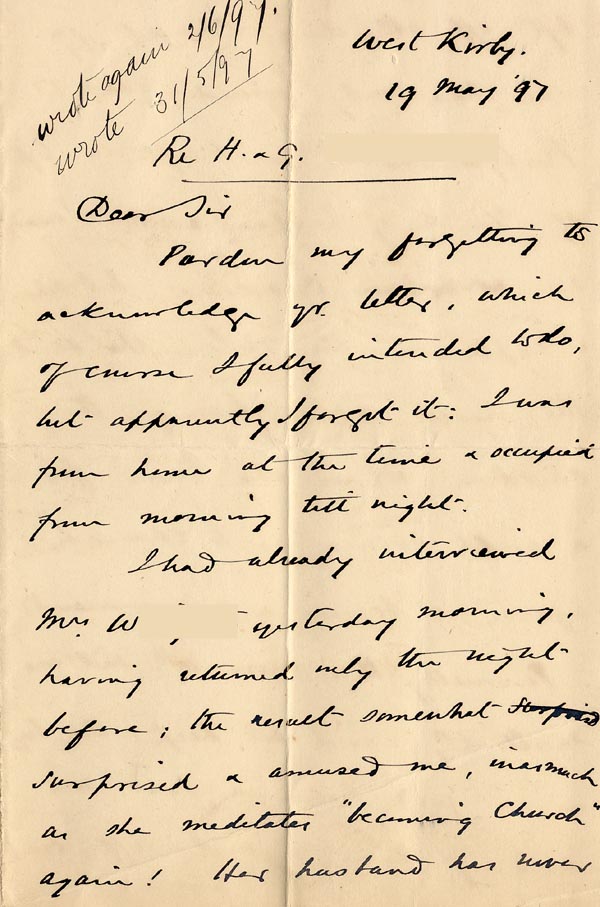 wrote again 2/6/97.
wrote 31/5/97
West Kirby.
19 May '97
Re H. & G.
Dear Sir
Pardon my forgetting to
acknowledge yr. letter, which
of course I fully intended to do,
but apparently I forgot it: I was
from home at the time & occupied
from morning till night.
I had already interviewed
Mrs W yesterday morning,
having returned only the night
before; the result somewhat surprised
surprised & amused me, inasmuch
as she meditates "becoming Church"
again! Her husband has never